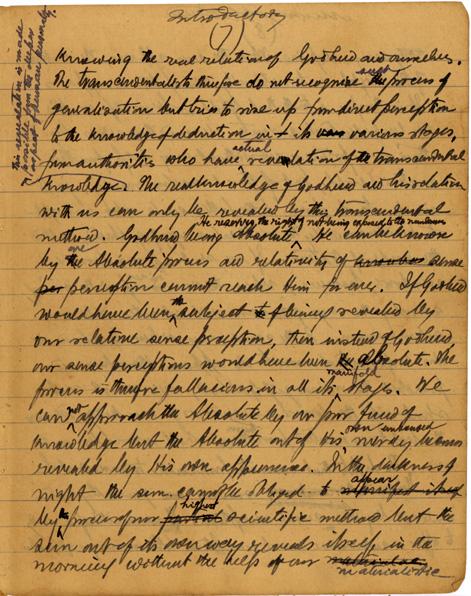 Introductory
(7)
this revelation is made
possible from the deeper
aspect of human personality.
Knowing the real relation of Godhead and ourselves.
The transcendentalists therefore do not recognise such process of
generalization but tries to rise up from direct perception
to the knowledge of deduction in its various stages,
from authorities who have actual revelation of the transcendental
Knowledge. The real knowledge of Godhead and his relation
with us can only be revealed by this transcendental
method. Godhead being absolute He reserves the right of not being exposed to the mundane He can be known
by the Absolute process and relativity of sense
perception cannot reach Him for ever. If Godhead
would have been the subject of being revealed by
our relative sense perception, then instead of Godhead,
our sense perceptions would have been Absolute. The
process is therefore fallacious in all its manifold stages. We
can not approach the Absolute by our poor fund of
Knowledge but the Absolute out of His own unbounded mercy becomes
revealed by His own appearance. In the darkness of
night the sun cannot be obliged to appear
by the process of our highest scientific method but the
sun out of its own way reveals itself in the
morning without the help of our
materialistic